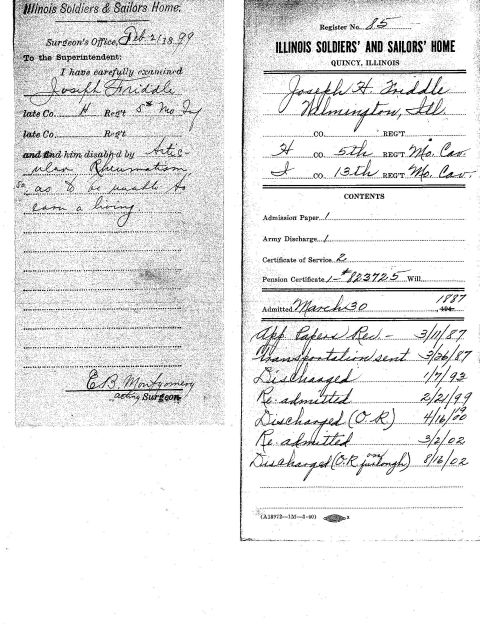 Illinois Soldiers & Sailors Home.
Surgeon's Office, Feb 21 1899
To the Superintendent:
I have carefully examined
Joseph Friddle
late Co. H Reg't 5th Mo Inf
late Co. Reg't
and find him disabled by Artic-
ular Rheumatism
so as to be unable to
earn a living
E.B. Montgomery
acting Surgeon
Register No. 85
ILLINOIS SOLDIERS' AND SAILORS' HOME
QUINCY, ILLINOIS
Joseph H. Friddle
Wilmington, Ill.
CO. REG'T
H CO. 5th REG'T Mo. Cav.
I CO. 13th REG'T Mo. Cav.
CONTENTS
Admission Paper 1
Army Discharge 1
Certificate of Service 2
Pension Certificate 1-#823725 Will
Admitted March 30 1887
App. Papers Rec - 3/11/87
Transportation sent 3/26/87
Discharged 1/7/93
Re-admitted 2/21/99
Discharged (O.R.) 4/16/00
Re-admitted 3/2/02
Discharged (O.R. on furlough) 8/16/02